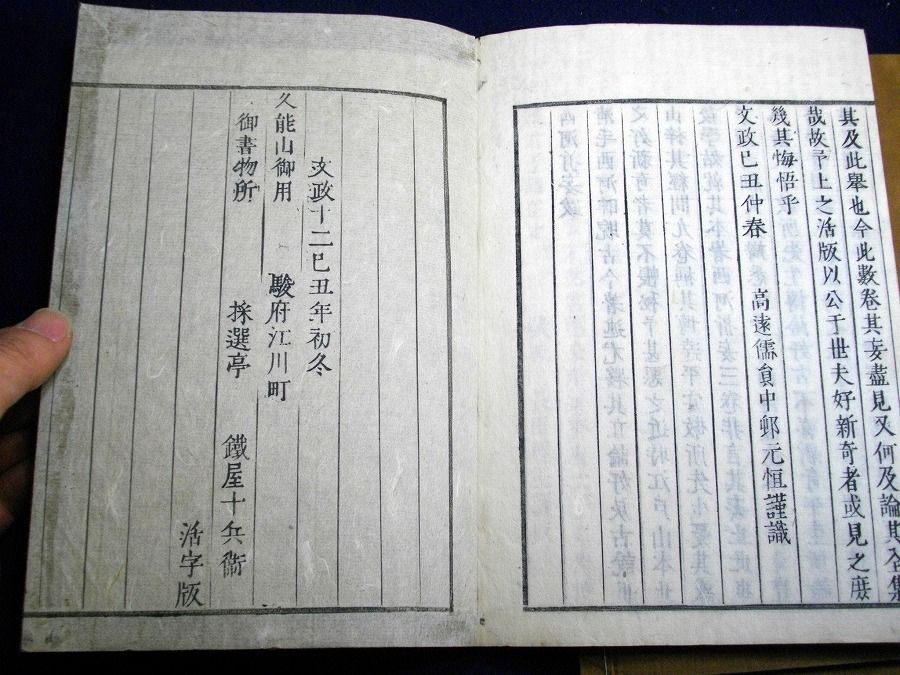 其及此擧也今此數卷其妄盡見又何及論其全集
哉故予上之活版以公于世夫好新奇者或見之庶
幾其悔悟乎
文政己丑仲春　高遠儒員中邨元恒謹識
文政十二己丑年初冬
久能山御用　駿府江川町
御書物所　採選亭　鐵屋十兵衞
活字版